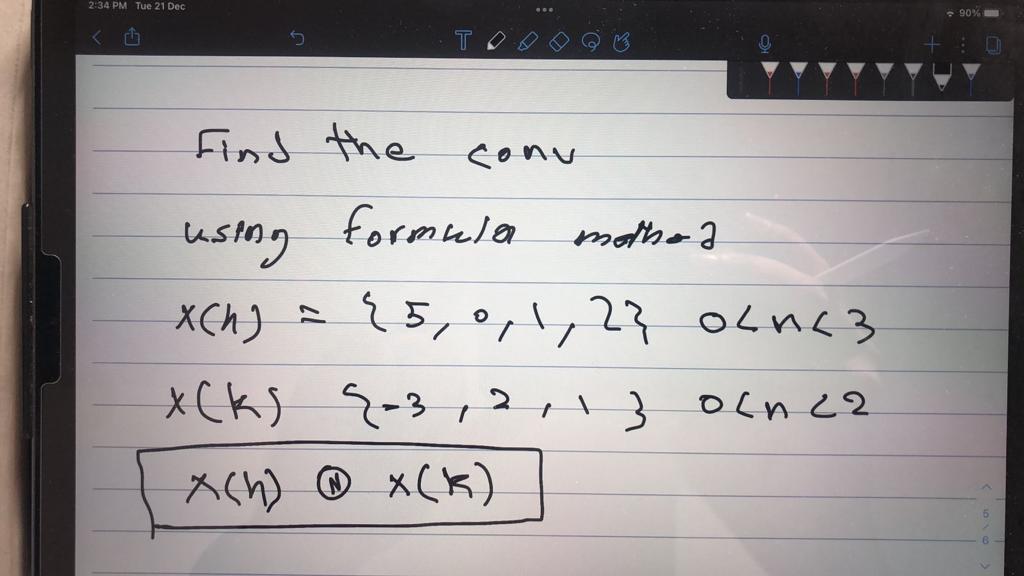 2:34 PM Tue 21 Dec
90%
T
Find the conv
using formula method
x(n) = {5, 0, 1, 2} 0<n<3
x(k) {-3, 2, 1} 0<n<2
x(n) Ⓝ x(k)
5
/
6